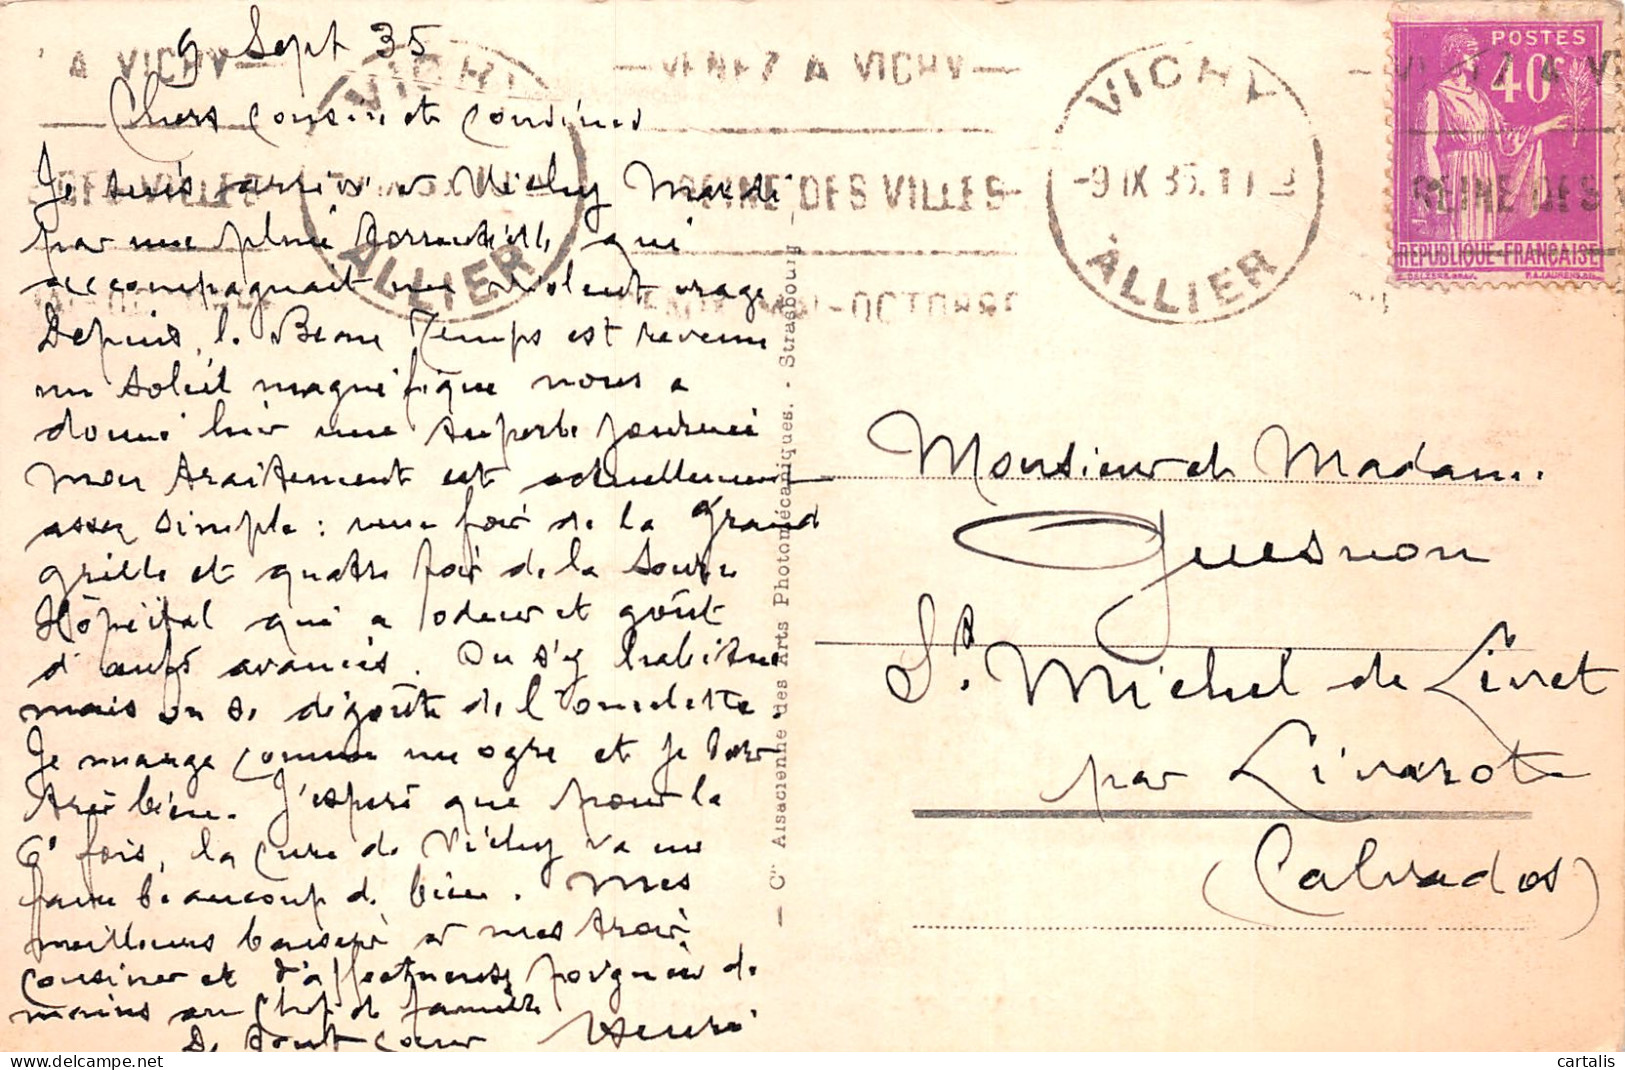 9 Sept 35
Chers cousin et cousines
Je suis arrivé à Vichy Mardi
par une pluie torrentielle qui
accompagnait un violent orage
Depuis, le Beau Temps est revenu
un soleil magnifique nous a
donné hier une superbe journée
mon traitement est actuellement
assez simple : une fois de la grand
grille et quatre fois de la source
Hôpital qui a odeur et goût
d'œufs avancés. On s'y habitue
mais on se dégoûte de l'omelette.
Je mange comme un ogre et je dors
très bien. J'espère que pour la
6e fois, la cure de Vichy va me
faire beaucoup de bien. Mes
meilleurs baisers à mes trois
cousines et d'affectueuses poignées de
mains au Chef de famille
De tout cœur Henri
A VICHY
VENEZ A VICHY
REINE DES VILLES
VICHY
-9 IX 35
ALLIER
POSTES
40c
REPUBLIQUE-FRANÇAISE
REINE DES V
Monsieur et Madame
Guesnon
St. Michel de Livet
par Livarot
(Calvados)
— Cie Alsacienne des Arts Photomécaniques. - Strasbourg —
cartalis